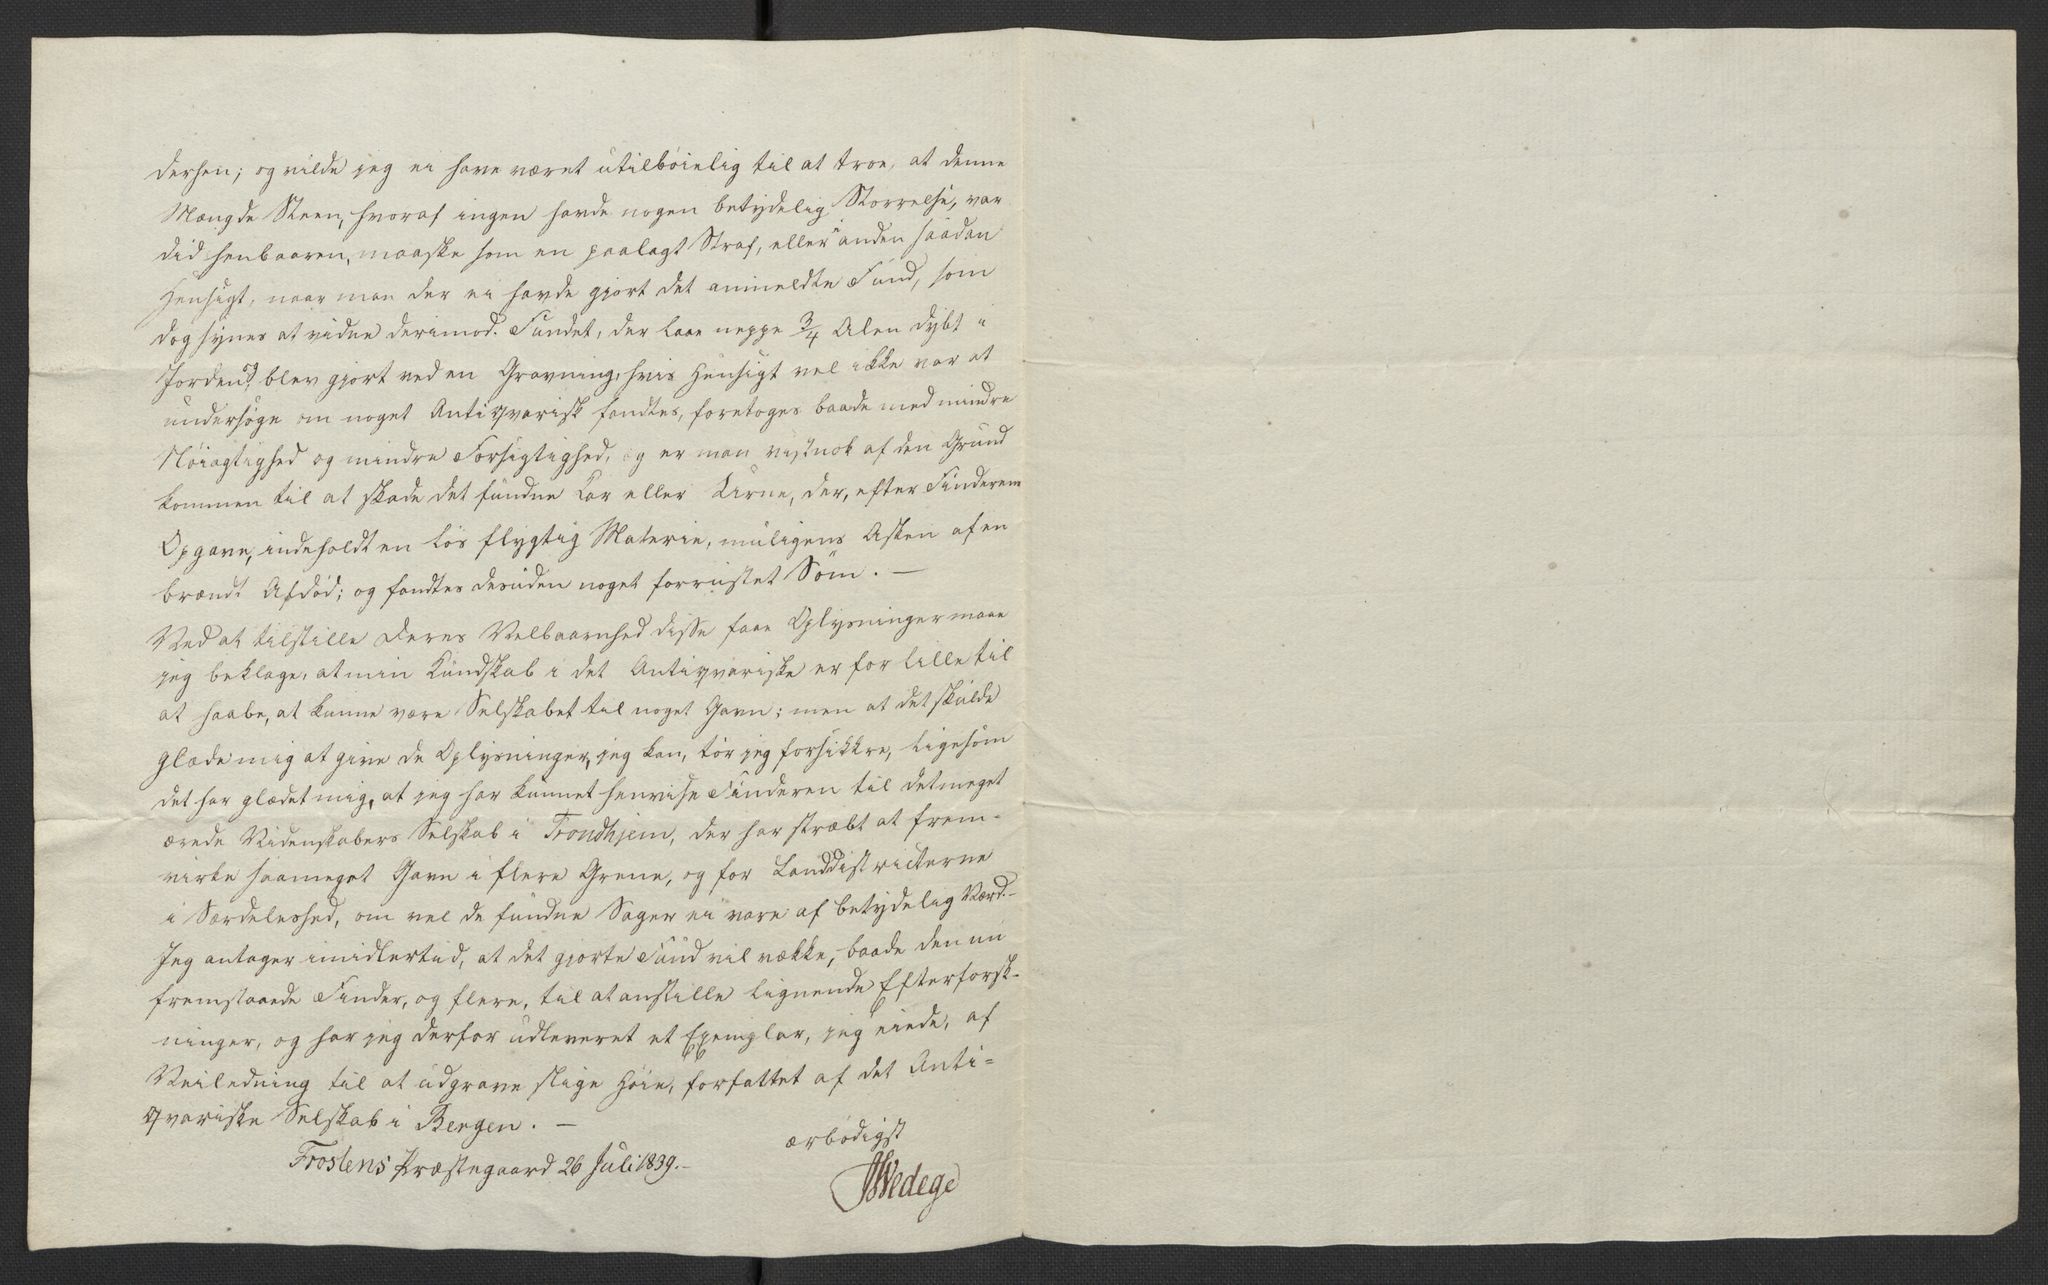 derhen; og vilde jeg ei have været utilböielig til at troe, at denne
Mængde Steen, hvoraf ingen havde nogen betydelig Störrelse, var
did henbaaren, maaske som en paalagt Straf, eller i anden saadan
Hensigt, naar man der ei havde gjort det anmeldte Fund, som
dog synes at vidne derimod. Fundet, der laae neppe 3/4 Alen dybt i
Jorden, og blev gjort ved en Gravning, hvis Hensigt vel ikke var at
undersöge om noget Antiqvarisk fandtes, foretoges baade med mindre
Nöiagtighed og mindre Forsigtighed, og er man vistnok af den Grund
kommen til at skade det fundne Kar eller Urne, der, efter Finderens
Opgave, indeholdt en lös flygtig Materie, muligens Asken af en
brændt Afdöd; og fandtes desuden noget forrustet Söm. —
Ved at tilstille Deres Velbaarnhed disse faae Oplysninger maae
jeg beklage, at min Kundskab i det Antiqvariske er for lille til
at haabe, at kunne være Selskabet til noget Gavn; men at det skulde
glæde mig at give de Oplysninger, jeg kan, tör jeg forsikkre, ligesom
det har glædet mig, at jeg har kunnet henvise Finderen til det meget
ærede Videnskabers Selskab i Trondhjem, der har stræbt at frem-
virke saameget Gavn i flere Grene, og for Landdistricterne
i Særdeleshed, om vel de fundne Sager ei vare af betydelig Værd. —
Jeg antager imidlertid, at det gjorte Fund vil vække, baade den nu
fremstaaede Finder, og flere, til at anstille lignende Efterforsk-
ninger, og har jeg derfor udleveret et Exemplar, jeg eiede, af
Veiledning til at udgrave slige Höie, forfattet af det Anti=
qvariske Selskab i Bergen. —
ærbödigst
Frostens Præstegaard 26 Juli 1839. —
Wedege